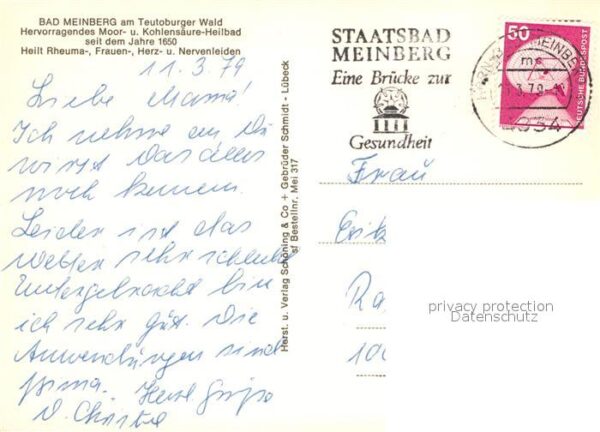 BAD MEINBERG am Teutoburger Wald
Hervorragendes Moor- u. Kohlensäure-Heilbad
seit dem Jahre 1650
Heilt Rheuma-, Frauen-, Herz- u. Nervenleiden
11.3.79
Liebe Mama!
Ich nehme an Du
wirst das alles
noch kennen.
Leider ist das
Wetter sehr schlecht
Untergebracht bin
ich sehr gut. Die
Anwendungen sind
prima. Herzl. Grüße
D. Christa
Herst. u. Verlag Schöning & Co + Gebrüder Schmidt - Lübeck
Bestellnr. Mei 317
STAATSBAD
MEINBERG
Eine Brücke zur
Gesundheit
50
DEUTSCHE BUNDESPOST
MEINBE
3.79
Frau
Erik
Ra
100
privacy protection
Datenschutz